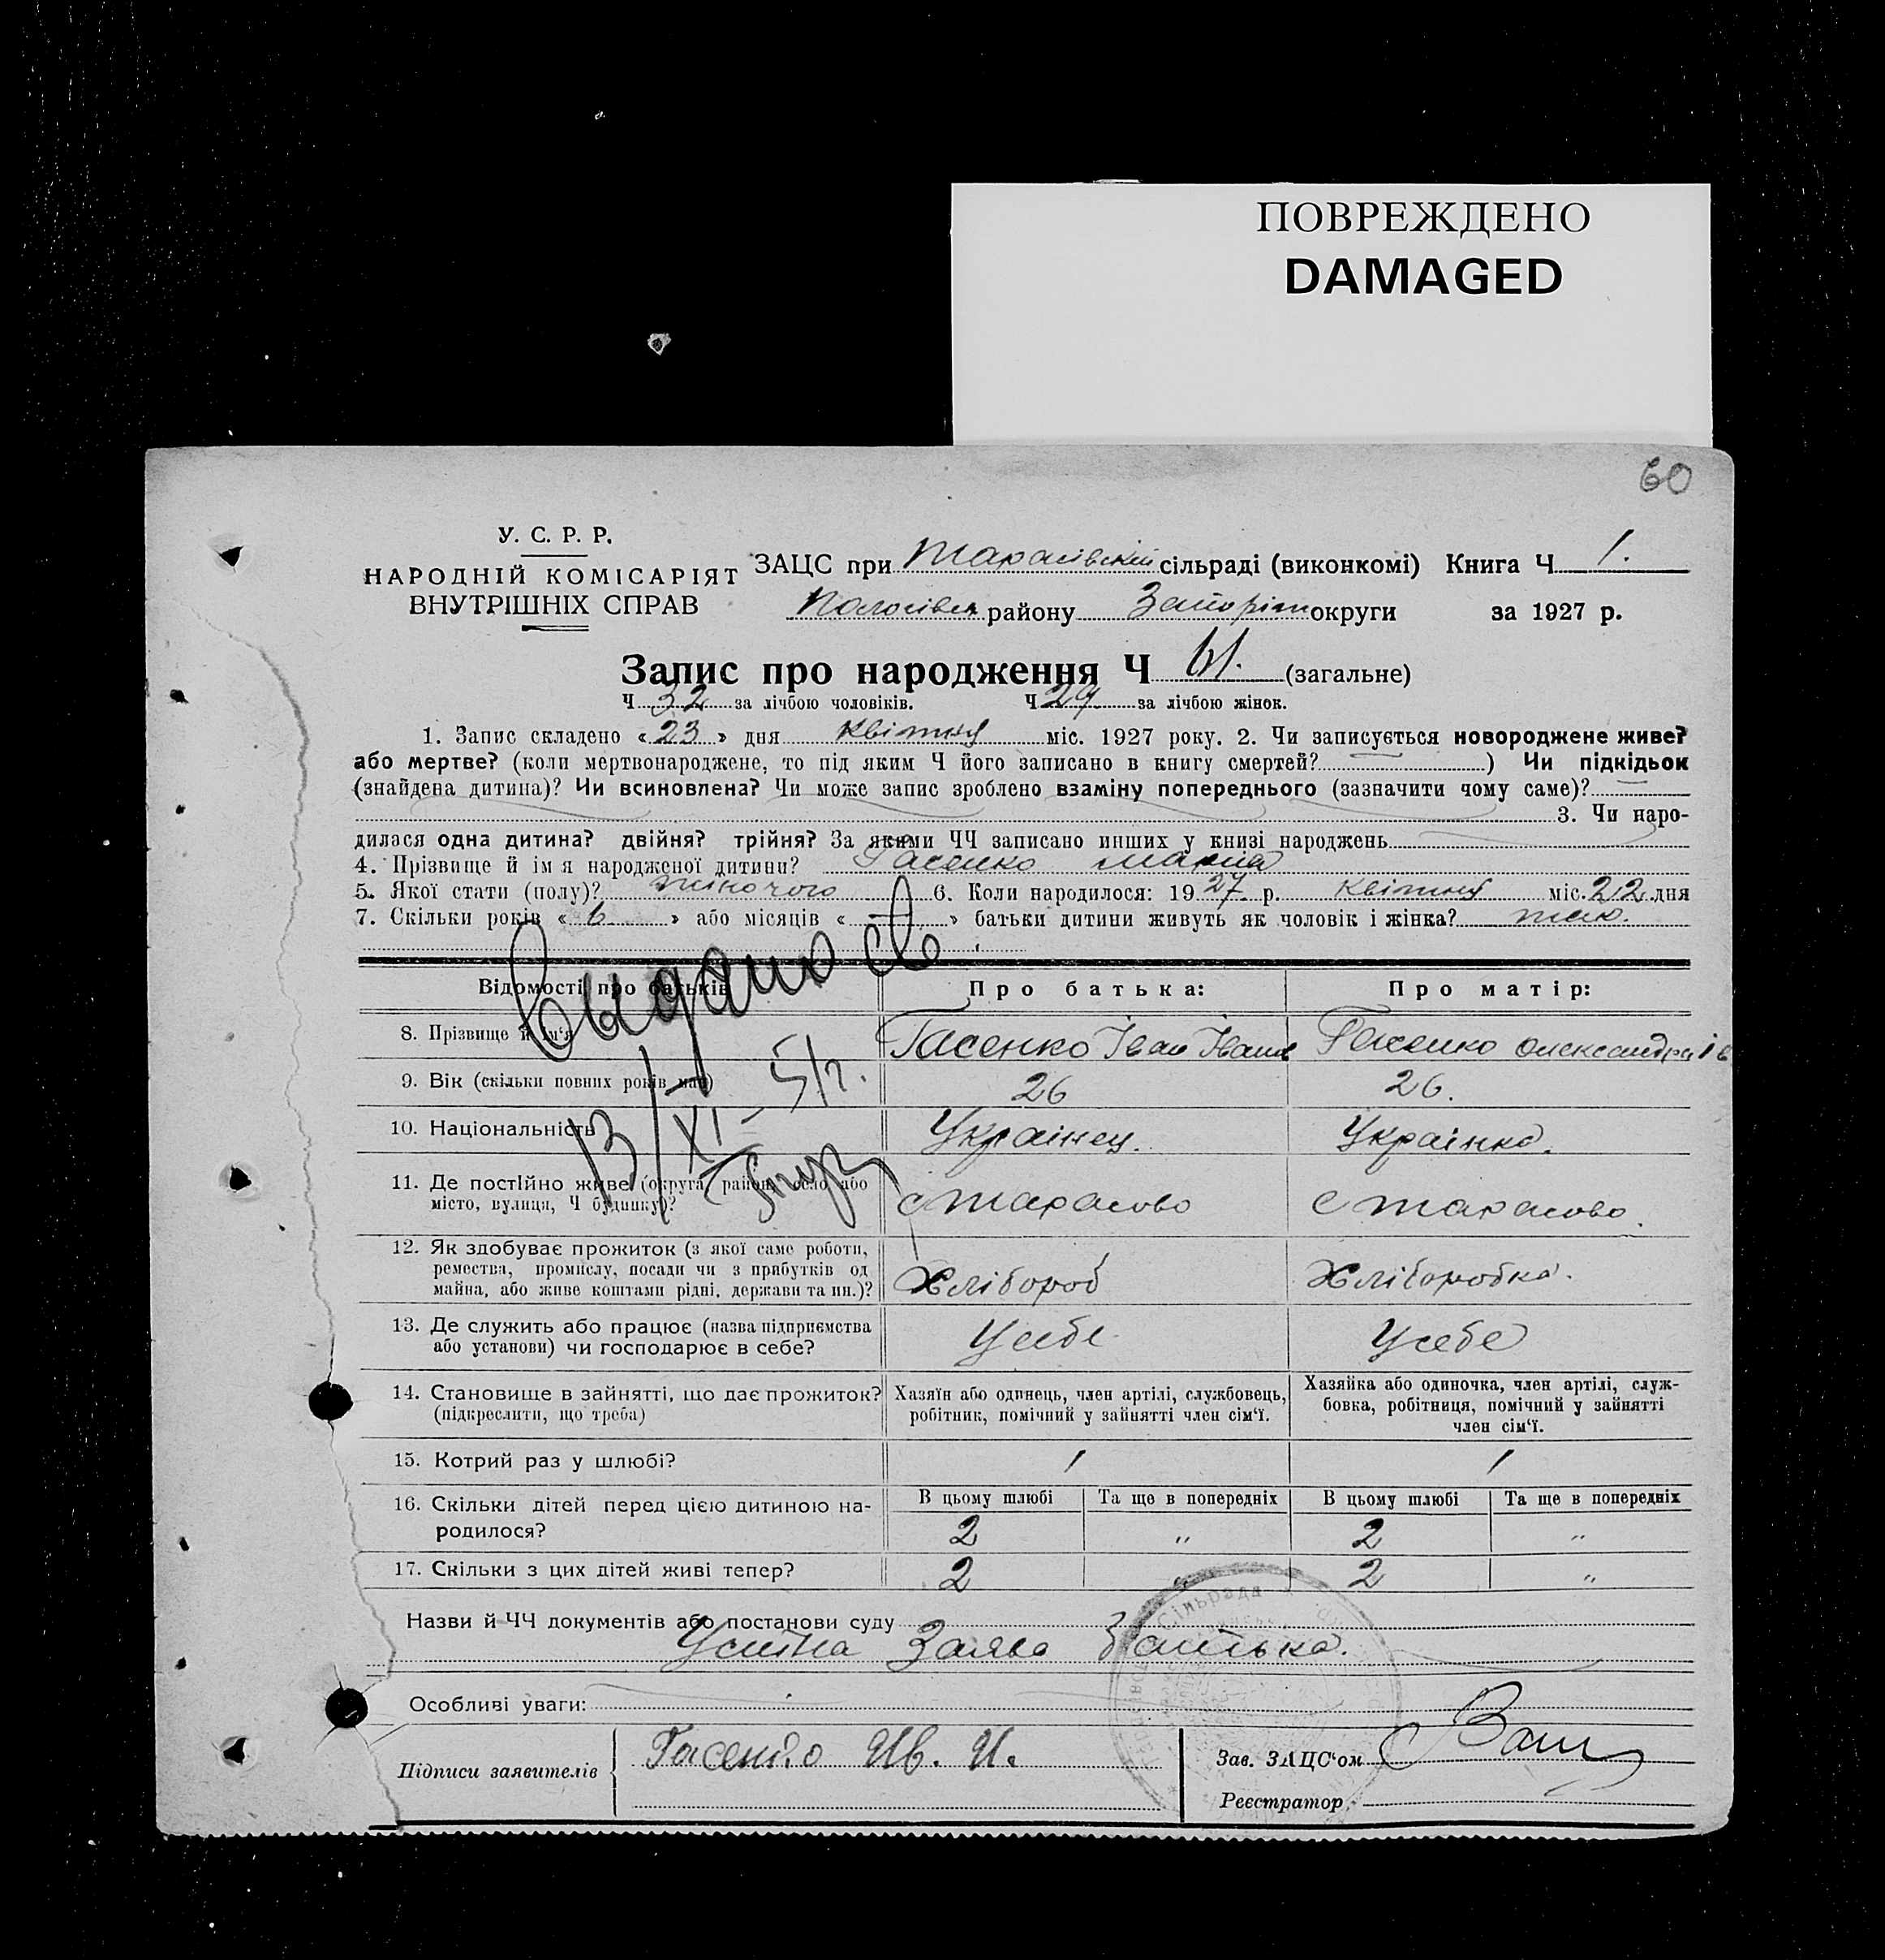 ПОВРЕЖДЕНО
DAMAGED
60
У. С. Р. Р.
НАРОДНІЙ КОМІСАРІЯТ
ВНУТРІШНІХ СПРАВ
ЗАЦС при Тарасівській сільраді (виконкомі) Книга Ч 1.
Пологівськ району Запоріж округи за 1927 р.
Запис про народження Ч 61. (загальне)
Ч 32 за лічбою чоловіків. Ч 29 за лічбою жінок.
1. Запис складено «23» дня квітня міс. 1927 року. 2. Чи записується новороджене живе?
або мертве? (коли мертвонароджене, то під яким Ч його записано в книгу смертей? ) Чи підкідьок
(знайдена дитина)? Чи всиновлена? Чи може запис зроблено взаміну попереднього (зазначити чому саме)?
3. Чи наро-
дилася одна дитина? двійня? трійня? За якими ЧЧ записано инших у книзі народжень
4. Прізвище й ім'я народженої дитини? Гасенко Марія
5. Якої стати (полу)? жіночого 6. Коли народилося: 1927 р. квітня міс. 22 дня
7. Скільки років «6» або місяців «—» батьки дитини живуть як чоловік і жінка? так.
Выдано св
13/XI - 51г.
Відомості про батьків Про батька: Про матір:
8. Прізвище й ім'я Гасенко Іван Іванов Гасенко Олександра Ів
9. Вік (скільки повних років має) 26 26.
10. Національність Українец. Українка.
11. Де постійно живе (округа, район, село або
місто, вулиця, Ч будинку)? с Тарасово с Тарасово.
12. Як здобуває прожиток (з якої саме роботи,
ремества, промислу, посади чи з прибутків од
майна, або живе коштами рідні, держави та ин.)? Хлібороб Хліборобка.
13. Де служить або працює (назва підприємства
або установи) чи господарює в себе? Усебе Усебе
14. Становище в зайнятті, що дає прожиток?
(підкреслити, що треба)
Хазяїн або одинець, член артілі, службовець,
робітник, помічний у зайнятті член сім'ї.
Хазяйка або одиночка, член артілі, служ-
бовка, робітниця, помічний у зайнятті
член сім'ї.
15. Котрий раз у шлюбі? 1 1
16. Скільки дітей перед цією дитиною на-
родилося?
В цьому шлюбі Та ще в попередніх В цьому шлюбі Та ще в попередніх
2 „ 2 „
17. Скільки з цих дітей живі тепер? 2 „ 2 „
Назви й ЧЧ документів або постанови суду
Усітна Заява Батька.
Особливі уваги:
Підписи заявителів Гасенко Ив. И.
Зав. ЗАЦС'ом
Реєстратор
Сільрада